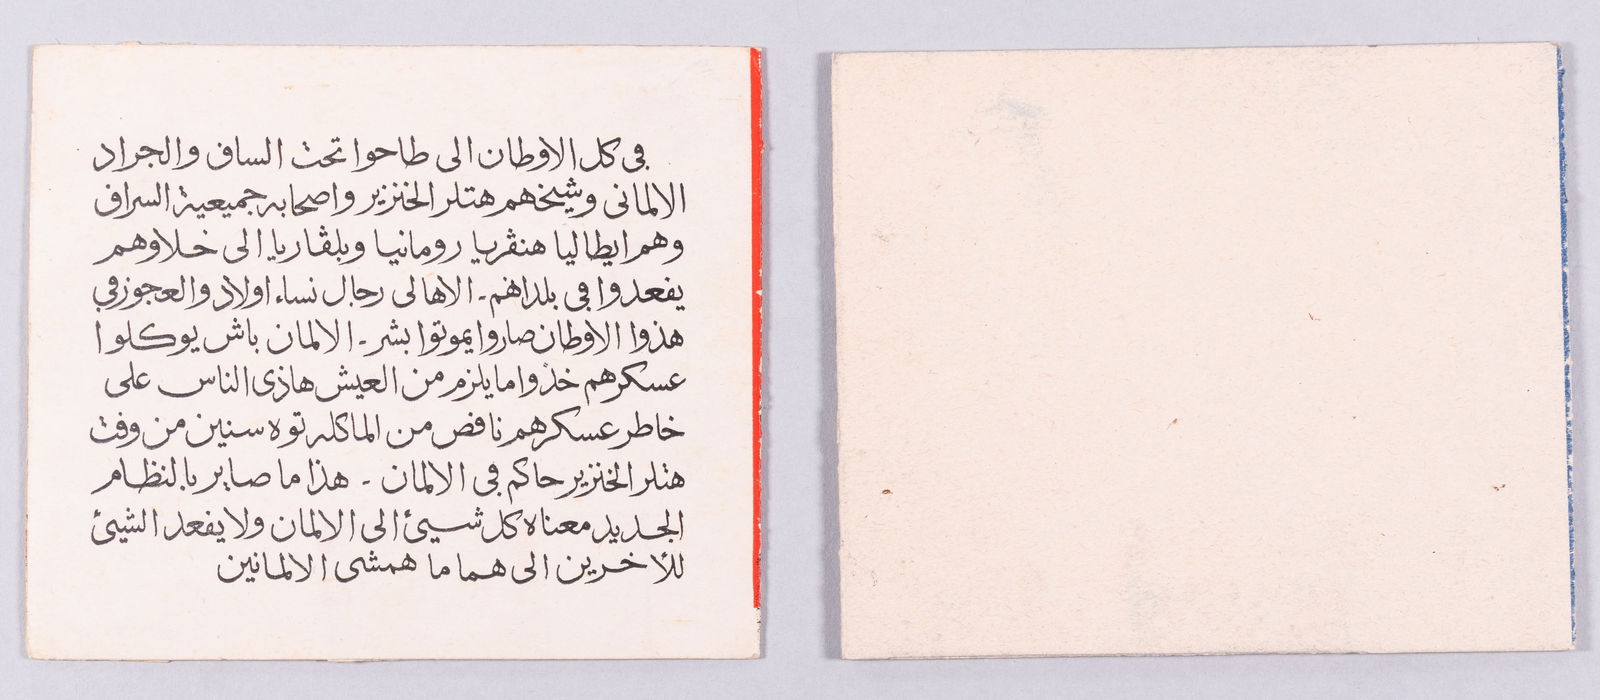 في كل الاوطان الى طاحوا تحت الساق والجراد
الالماني وشيخهم هتلر الخنزير واصحابه جميعية السراق
وهم ايطاليا هنڤريا رومانيا وبلڤاريا الى خلاوهم
يقعدوا في بلداهم ـ الاهالى رجال نساء اولاد والعجوز في
هذوا الاوطان صاروا يموتوا بشر ـ الالمان باش يوكلوا
عسكرهم خذوا ما يلزم من العيش هاذى الناس على
خاطر عسكرهم ناقص من الماكله توه سنين من وقت
هتلر الخنزير حاكم في الالمان ـ هذا ما صاير بالنظام
الجديد معناه كل شيئ الى الالمان ولا يقعد الشيئ
للأخرين الى هما ما همشى الالمانين